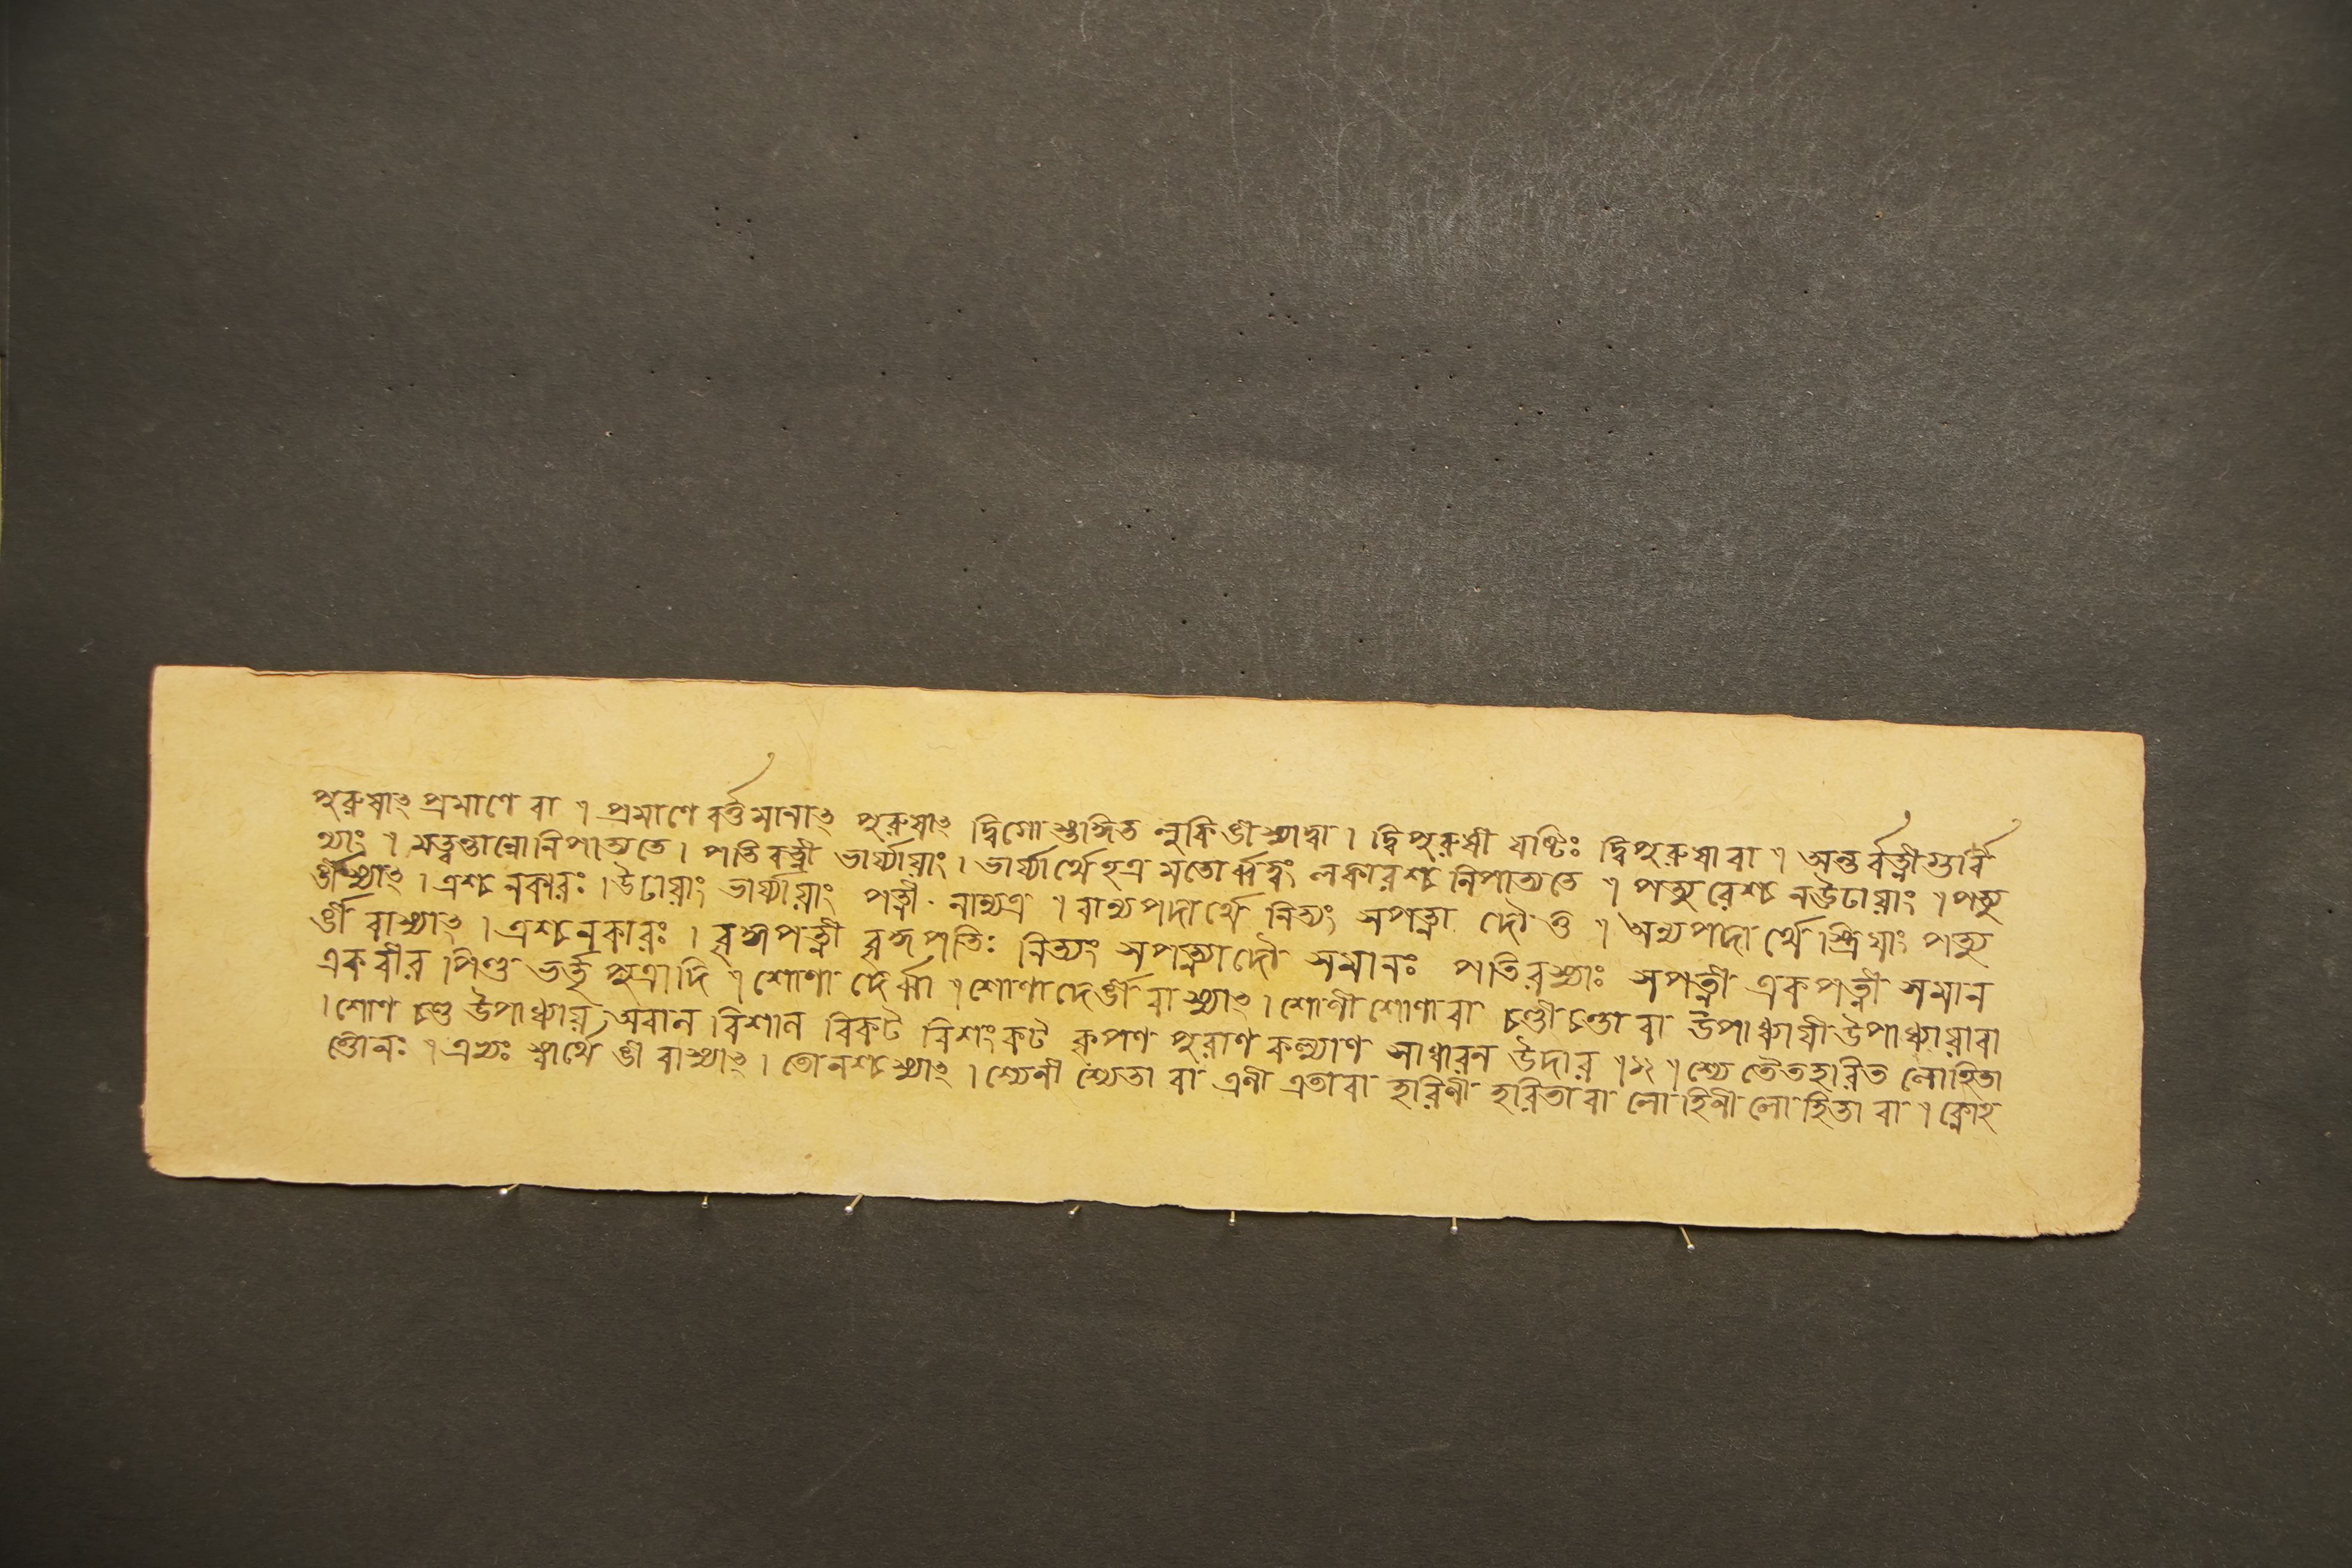 পুরুষাৎ প্রমাণে বা । প্রমাণে বর্ত্তমানাৎ পুরুষাৎ দ্বিগোস্তদ্ধিত লুকি ঙী স্যাদ্বা । দ্বিপুরুষী যষ্টিঃ দ্বিপুরুষা বা । অন্তর্বত্নী গুর্বি
ণ্যাং । মত্বন্তান্নোনিপাত্যতে । পতিবত্নী ভার্য্যায়াং । ভার্য্যার্থেহত্র মতোর্ব্বত্বং নকারশ্চ নিপাত্যতে । পত্যুরেশ্চ ন ঊঢায়াং । পত্যু
র্ঙী স্যাৎ । এশ্চ নকারঃ । উঢায়াং ভার্য্যায়াং পত্নী নান্যত্র । বান্যপদার্থে নিত্যং সপত্ন্যাদৌ তু । অন্যপদার্থে স্ত্রিয়াং পত্যু
র্ঙী বা স্যাৎ । এশ্চ নকারঃ । বৃদ্ধপত্নী বৃদ্ধপতিঃ নিত্যং সপত্ন্যাদৌ সমানঃ পতিরস্যাঃ সপত্নী একপত্নী সমান
একবীর পিণ্ড ভর্ত্তৃ পুত্রাদি । শোণাদের্ব্বা । শোণাদের্ঙী বা স্যাৎ । শোণী শোণা বা চণ্ডী চণ্ডা বা উপাধ্যায়ী উপাধ্যায়া বা
। শোণ চণ্ড উপাধ্যায় অরাল বিশাল বিকট বিশংকট কৃপণ পুরাণ কল্যাণ সাধারন উদার । শ্যেতৈতহরিত লোহিতা
ত্তোনঃ । এভ্যঃ স্বার্থে ঙী বা স্যাৎ । তোনশ্চ স্যাৎ । শ্যেনী শ্যেতা বা এনী এতা বা হরিণী হরিতা বা লোহিনী লোহিতা বা । ক্নোহ